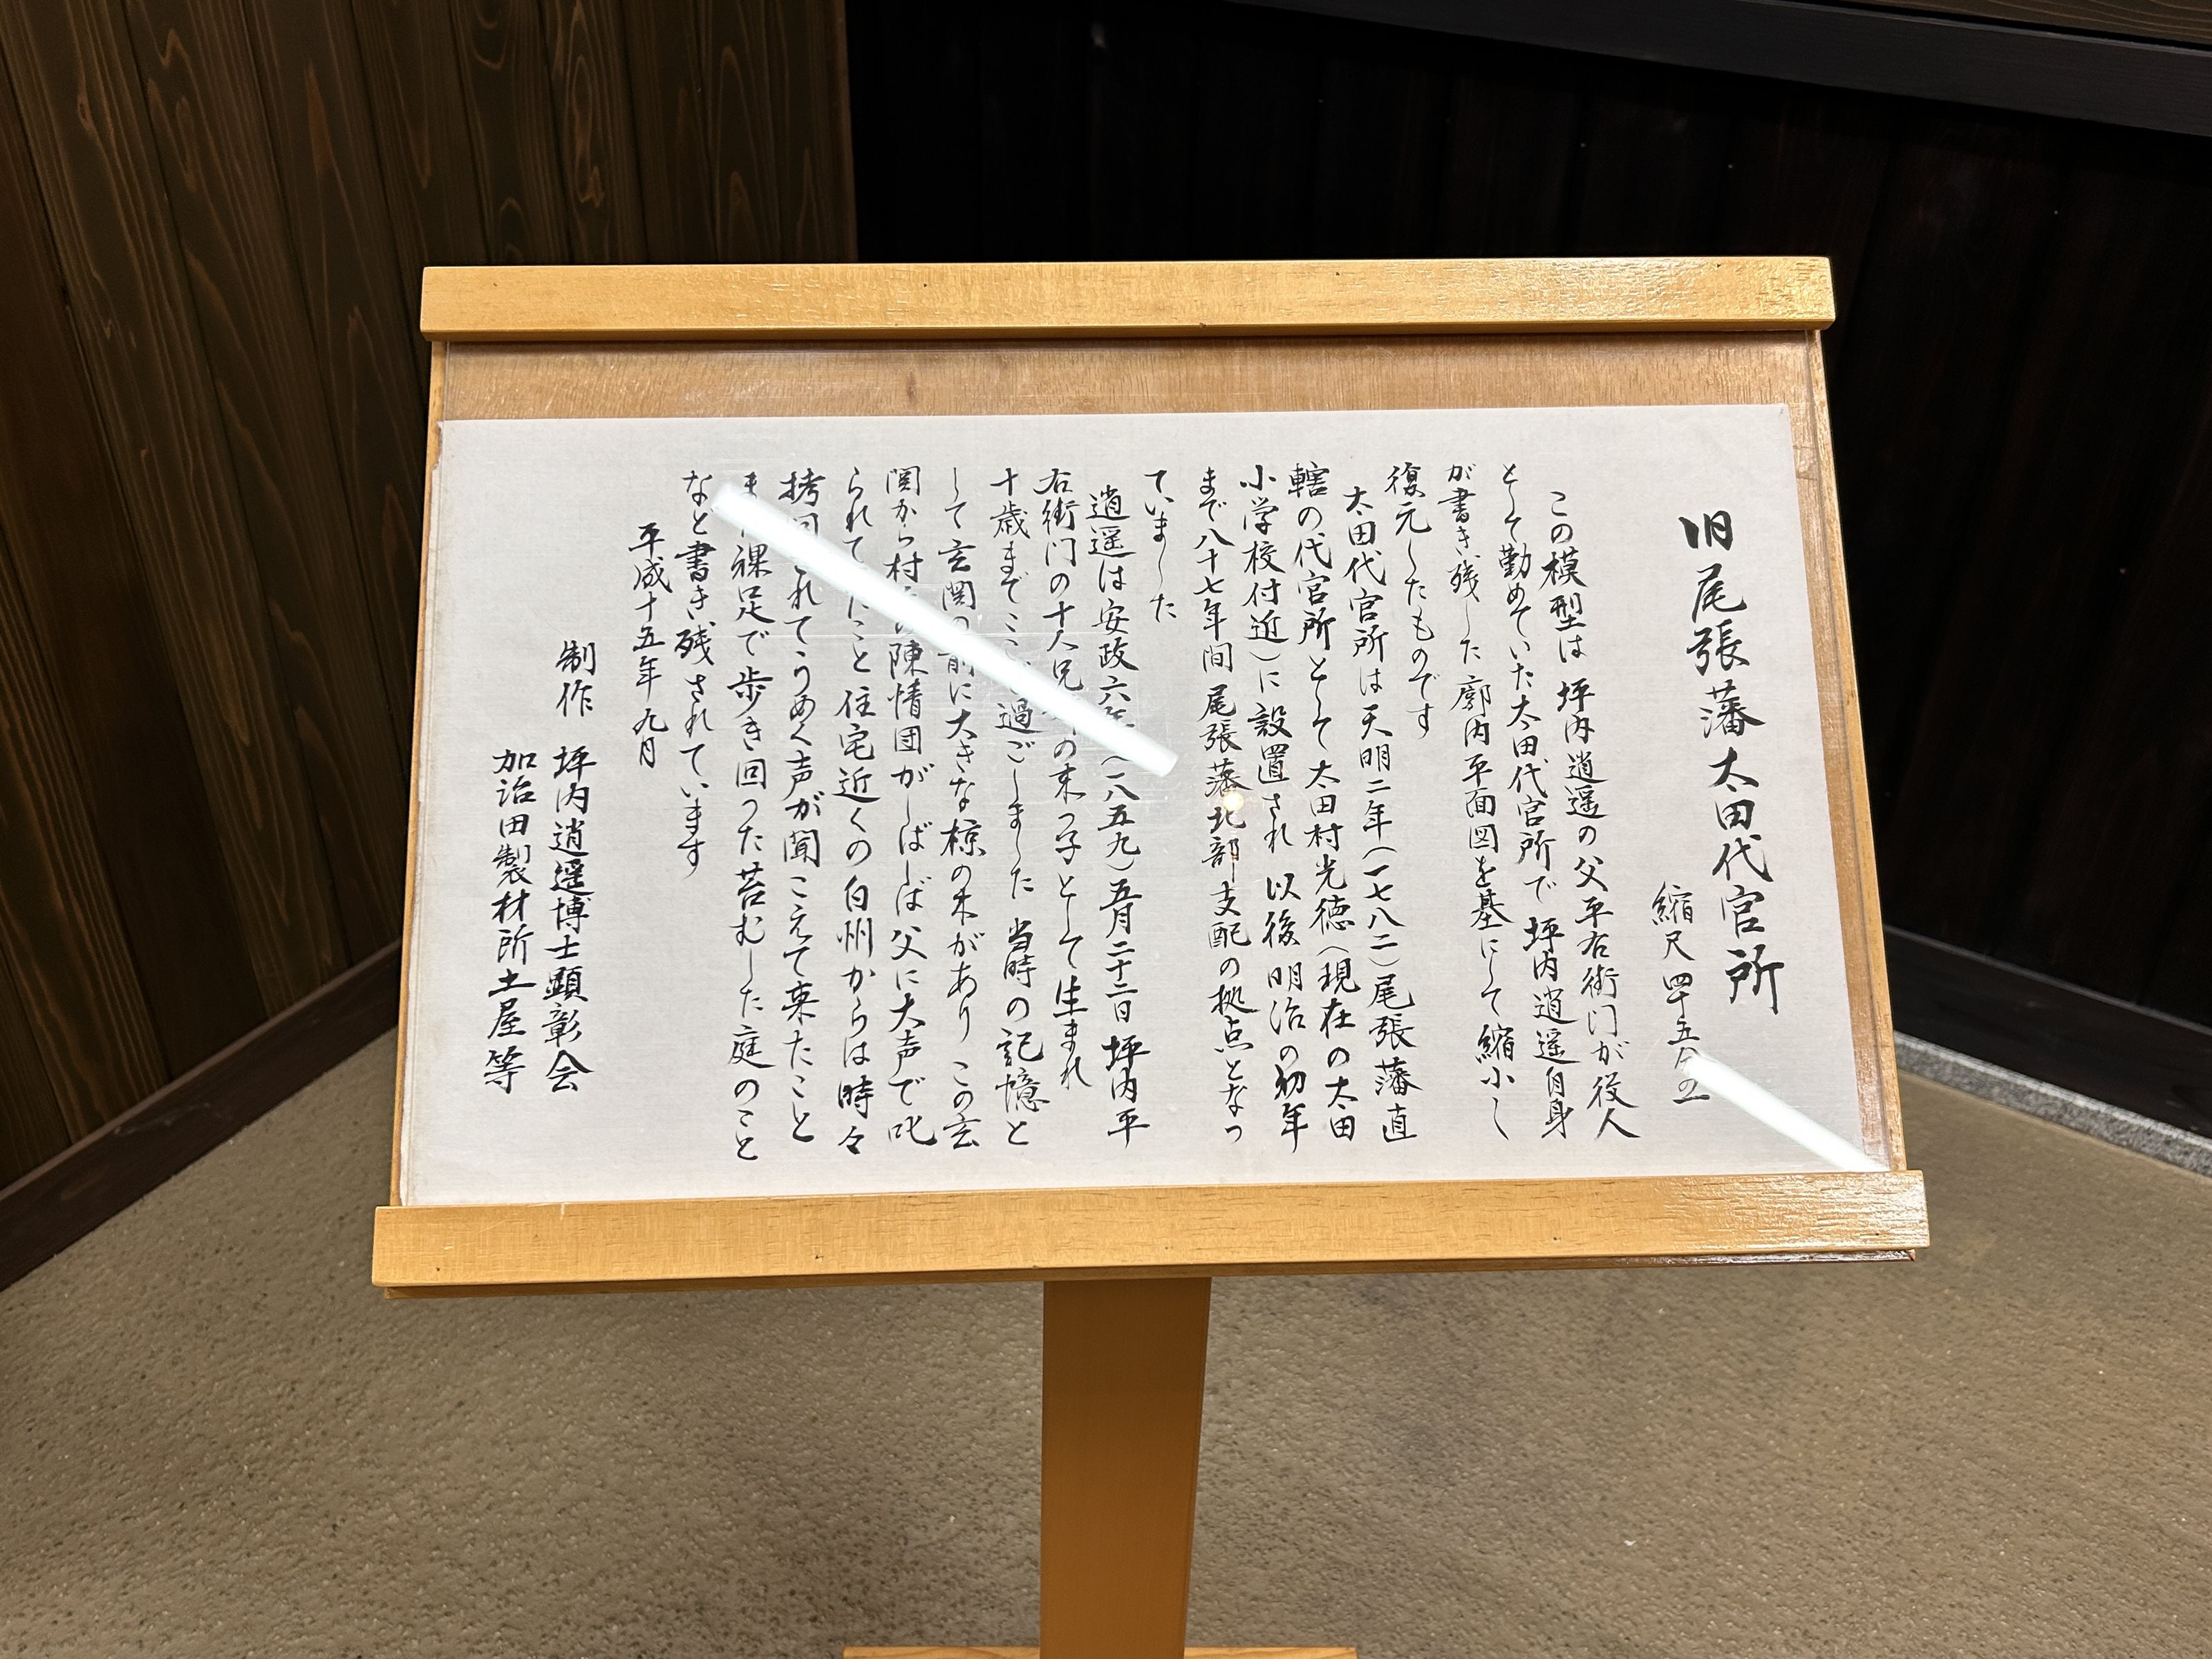 旧尾張藩太田代官所
縮尺四十五分の一
この模型は坪内逍遥の父平右衛門が役人
として勤めていた太田代官所で坪内逍遥自身
が書き残した廓内平面図を基にして縮小し
復元したものです
太田代官所は天明二年(一七八二)尾張藩直
轄の代官所として太田村光徳(現在の太田
小学校付近)に設置され以後明治の初年
まで八十七年間尾張藩北部支配の拠点となっ
ていました
逍遥は安政六年(一八五九)五月二十二日坪内平
右衛門の十人兄の末っ子として生まれ
十歳までここ過ごしました当時の記憶と
して玄関の前に大きな椋の木がありこの玄
関から村の陳情団がしばしば父に大声で叱
られてたこと住宅近くの白州からは時々
拷問されてうめく声が聞こえて来たこと
ま裸足で歩き回った苔むした庭のこと
など書き残されています
平成十五年九月
制作 坪内逍遥博士顕彰会
加治田製材所土屋等